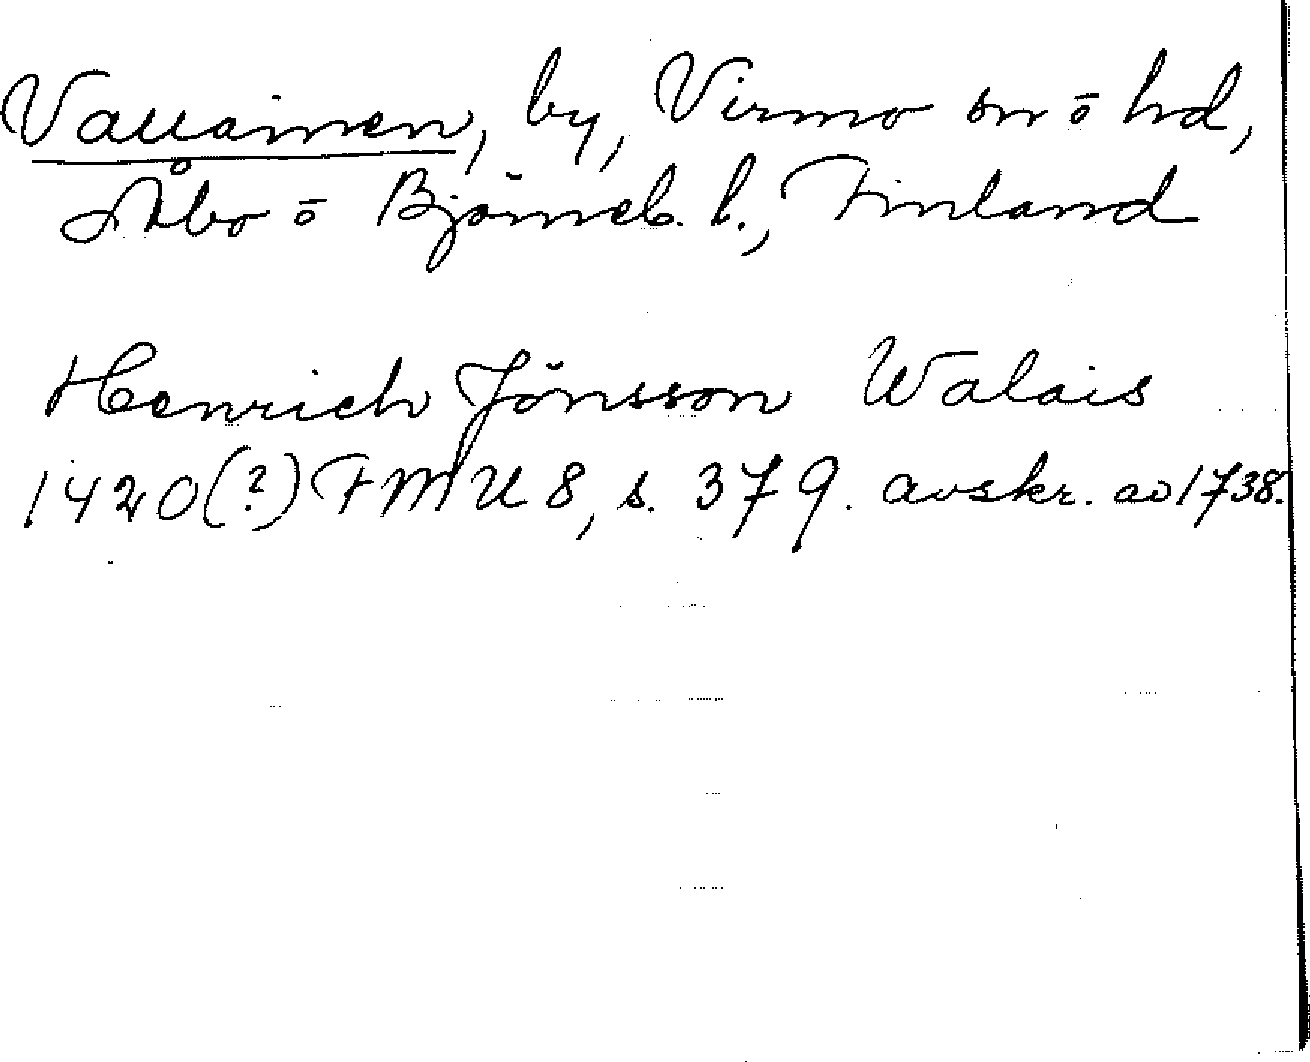 Vallainen, by, Virmo sn o hd,
Åbo o Björneb. l., Finland
Henrich Jönsson Walais
1420(?) FMU 8, s. 379. avskr. av 1738.